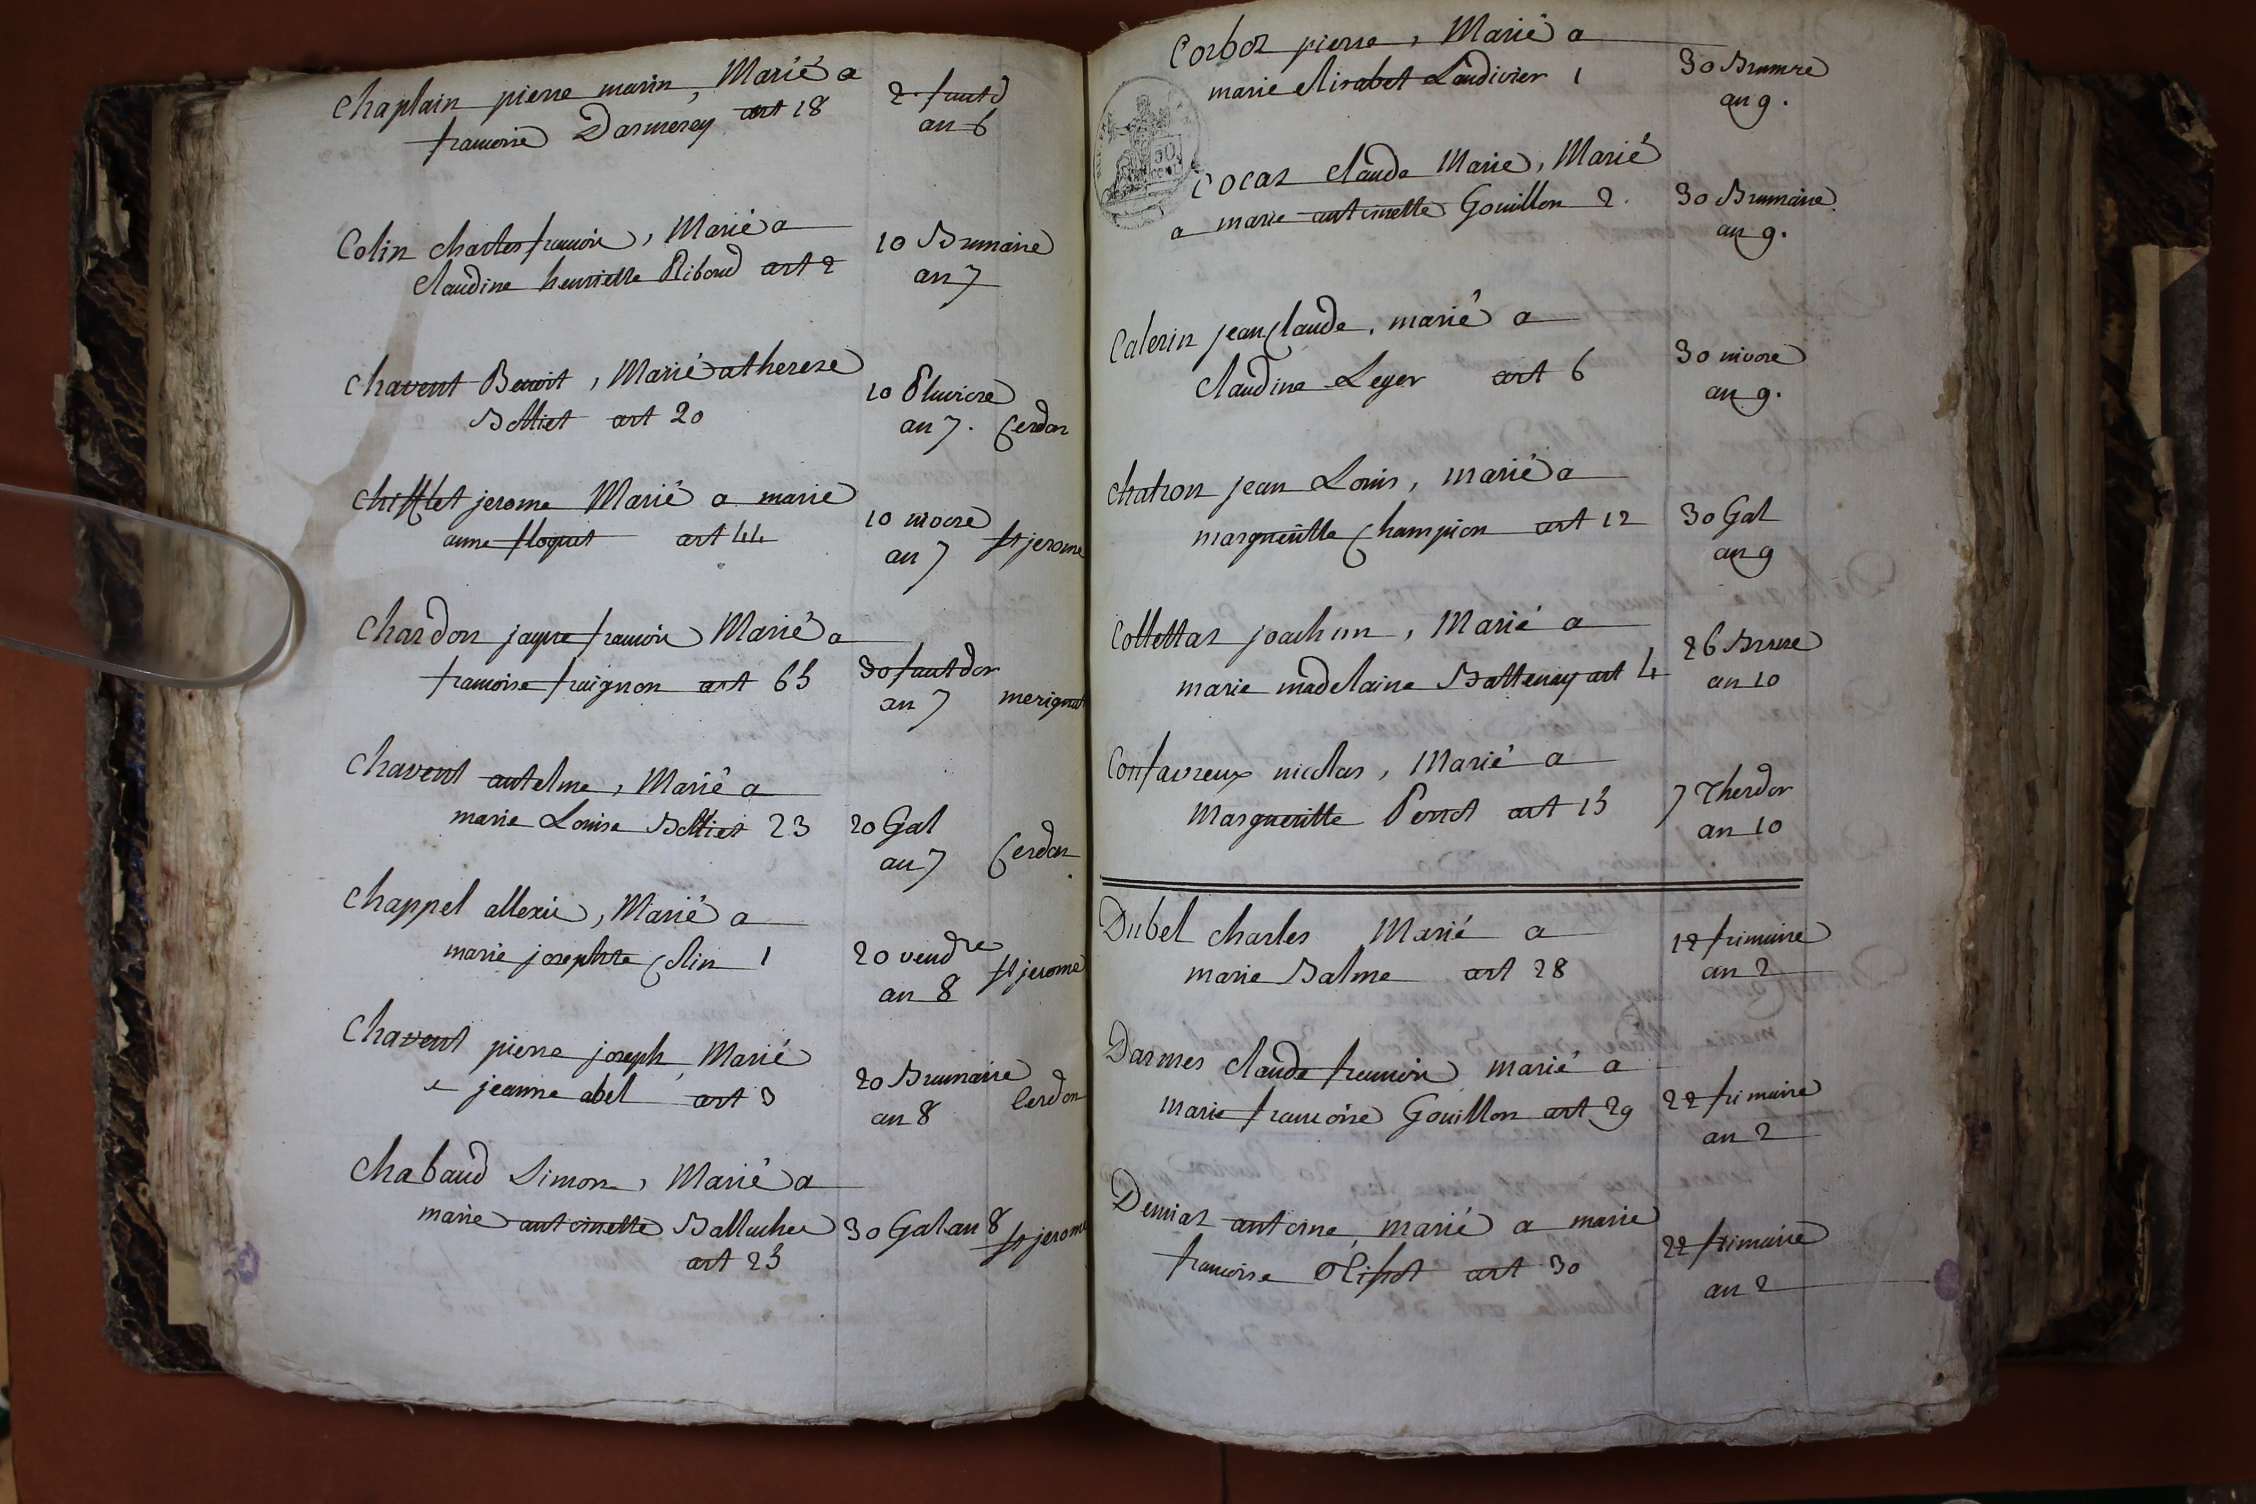 Chaplain pierre marin, Marié a
francoise Darmerey art 18
2 fruct.d
an 6
Colin charles francois, Marié a
Claudine henriette Riboud art 2
10 Brumaire
an 7
Chavent Benoit, Marié a therese
Bolliet art 20
10 Pluviose
an 7. Cerdon
Chifflet jerome Marié a marie
anne floquet art 44
10 nivose
an 7 St jerome
Chardon jayme francois Marié a
francoise fraignon art 65
30 fructdor
an 7 merignat
Chavent antelme, Marié a
marie Louise Bolliet 23
20 Gal
an 7 Cerdon
Chappel allexis, Marié a
marie josephte Colin 1
20 vendre
an 8 St jerome
Chavent pierre joseph, Marié
a jeanne abel art 3
20 Brumaire
an 8 Cerdon
Chabaud Simon, Marié a
marie antoinette Balluche 30 Gal an 8
St jerome
art 25
Corboz pierre, Marié a
marie elisabet Laudivier 1
30 Brumre
an 9.
50
CENT
Cocaz claude Marie, Marié
a marie antoinette Gouillon 2.
30 Brumaire
an 9.
Calerin jean Claude, marié a
Claudine Leger art 6
30 nivose
an 9.
Chatron jean Louis, marié a
margueritte Champion art 12
30 Gal
an 9
Collettaz joachim, Marié a
marie madelaine Battenay art 4
26 Brure
an 10
Confavreux nicolas, Marié a
Margueritte Perrot art 15
7 Therdor
an 10
Dubel charles Marié a
marie Balme art 28
12 frimaire
an 2
Darmes claude francois marié a
marie francoise Gouillon art 29
22 frimaire
an 2
Demiaz antoine, marié a marie
francoise art 30
22 frimaire
an 2